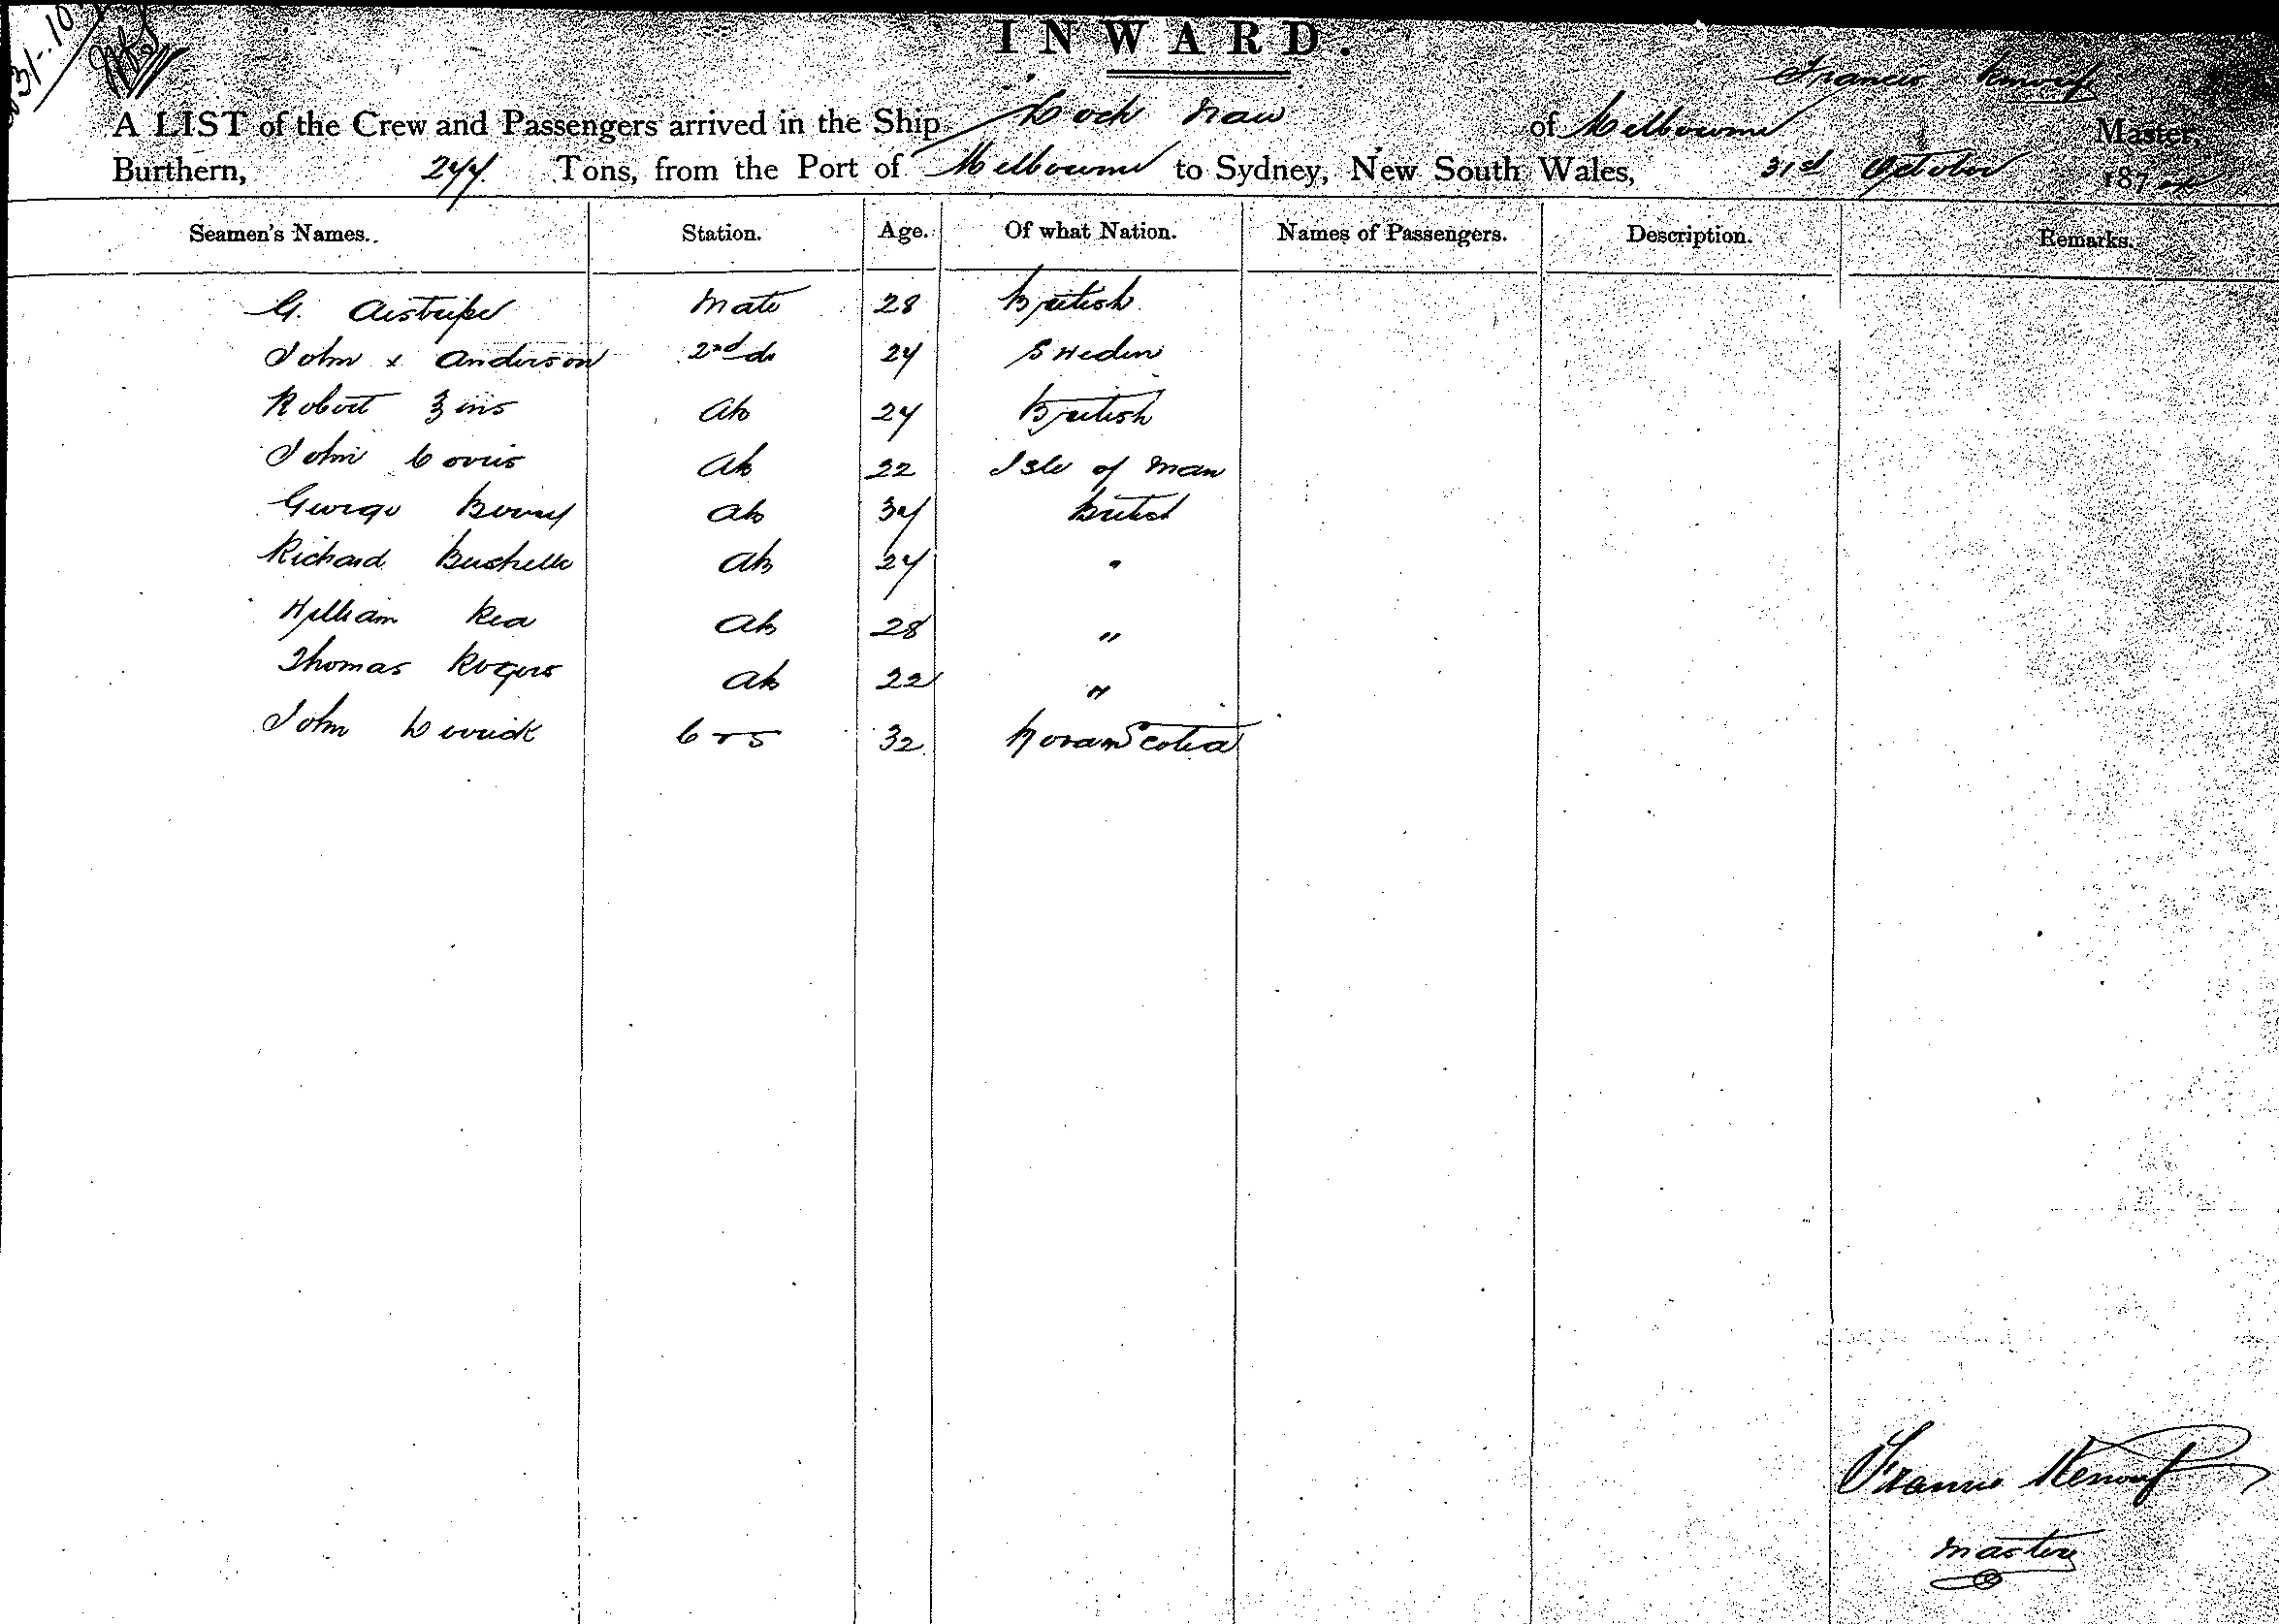 31-10
INWARD.
Francis Renouf
A LIST of the Crew and Passengers arrived in the Ship Loch Naw of Melbourne Master,
Burthern, 244 Tons, from the Port of Melbourne to Sydney, New South Wales, 31st October 187
Seamen's Names. Station. Age. Of what Nation. Names of Passengers. Description. Remarks.
G. Mate 28 British
John x Anderson 2nd do 24 Sweden
Robert Ab 24 British
John Ab 22 Isle of Man
George Ab 34 British
Richard Bushelle Ab 24 "
William Rea Ab 28 "
Thomas Rogers Ab 22 "
John Derrick C & S 32 Novan Scotia
Francis Renouf
Master